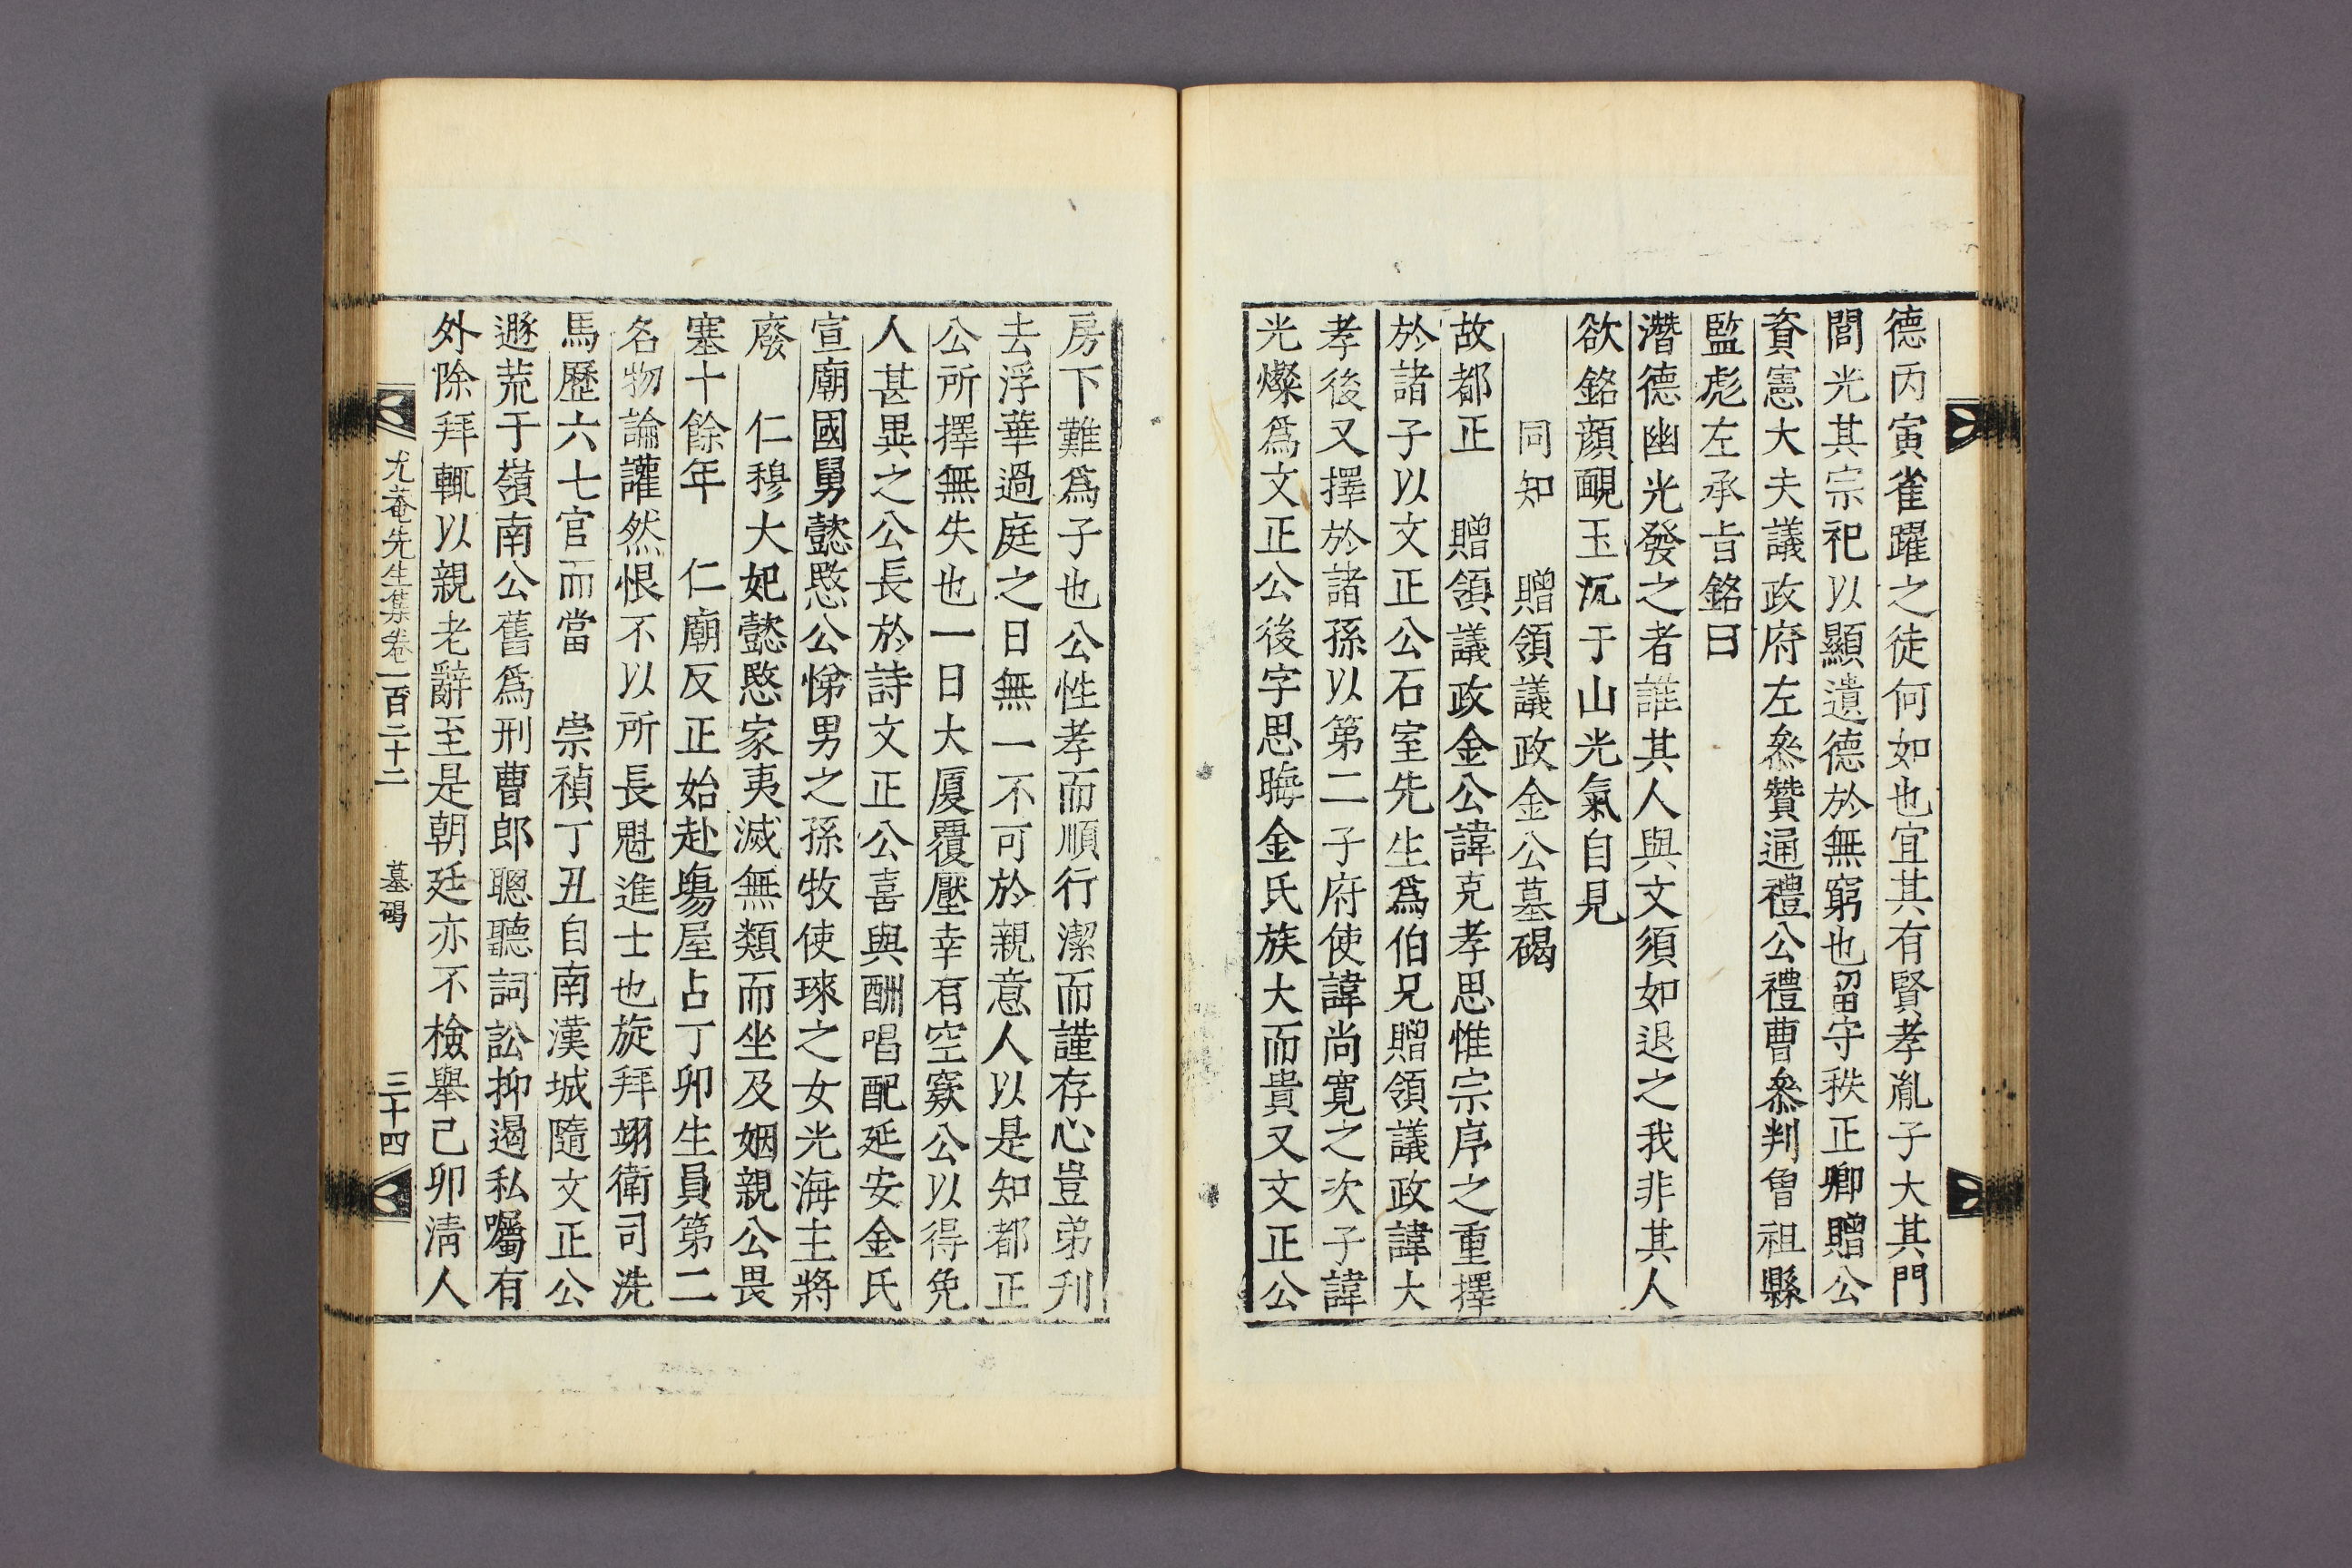 德丙寅雀躍之徒何如也宜其有賢孝胤子大其門
閭光其宗祀以顯遺德於無窮也留守秩正卿贈公
資憲大夫議政府左叅贊通禮公禮曹叅判曾祖縣
監彪左承旨銘曰
潛德幽光發之者誰其人與文須如退之我非其人
欲銘顔靦玉沉于山光氣自見
同知　贈領議政金公墓碣
故都正　贈領議政金公諱克孝思惟宗序之重擇
於諸子以文正公石室先生爲伯兄贈領議政諱大
孝後又擇於諸孫以第二子府使諱尙寬之次子諱
光燦爲文正公後字思晦金氏族大而貴又文正公
房下難爲子也公性孝而順行潔而謹存心豈弟刋
去浮華過庭之日無一不可於親意人以是知都正
公所擇無失也一日大厦覆壓幸有空窾公以得免
人甚異之公長於詩文正公喜與酬唱配延安金氏
宣廟國舅懿愍公悌男之孫牧使琜之女光海主將
廢　仁穆大妃懿愍家夷滅無類而坐及姻親公畏
塞十餘年　仁廟反正始赴塲屋占丁卯生員第二
名物論讙然恨不以所長魁進士也旋拜翊衛司洗
馬歷六七官而當　崇禎丁丑自南漢城隨文正公
遯荒于嶺南公舊爲刑曹郎聰聽詞訟抑遏私囑有
外除拜輒以親老辭至是朝廷亦不檢擧己卯淸人
尤菴先生集卷一百二十二　墓碣　三十四